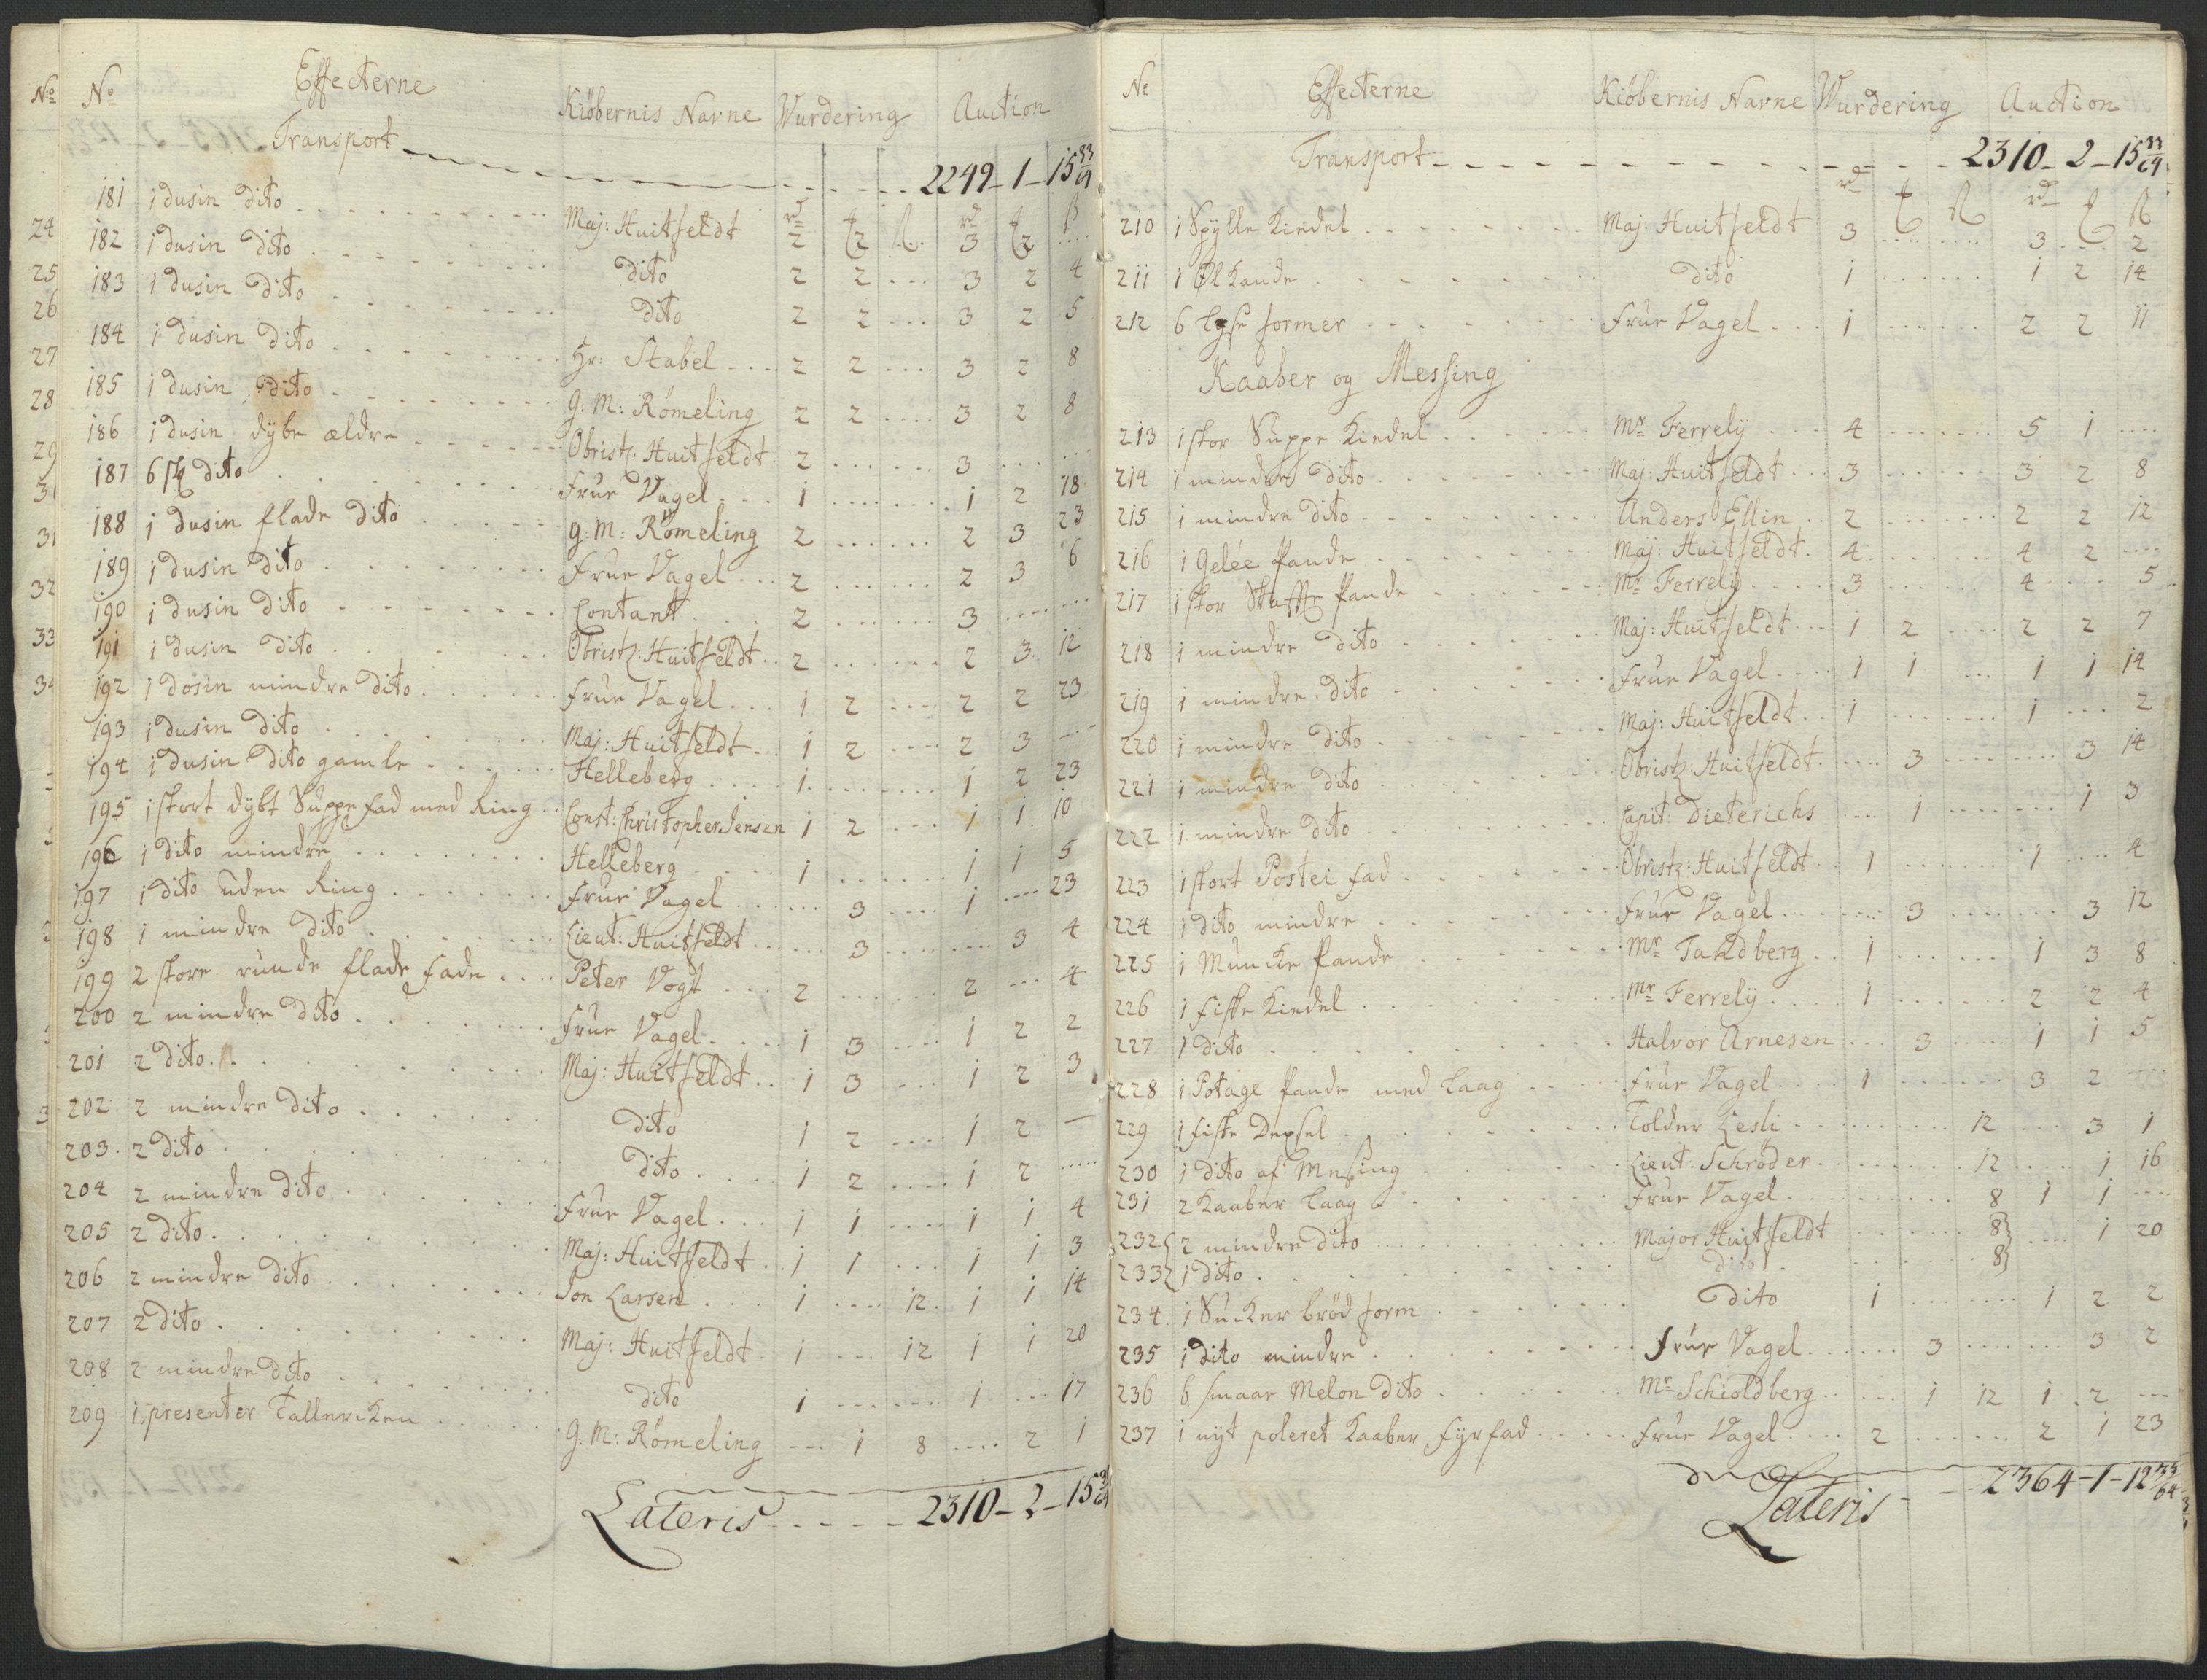 No No Effecterne Kiöbernis Navne Wurdering Auction
Transport 2249 - 1 - 15 33/64
rd ß rd ß
181 1 dusin dito Maj: Huitfeldt 2 2 3 2
24
182 1 dusin dito dito 2 2 3 2 4
25
183 1 dusin dito dito 2 2 3 2 5
26
184 1 dusin dito Hr: Stabel 2 2 3 2 8
27
185 1 dusin dito G: M: Römeling 2 2 3 2 8
28
186 1 dusin dybe ældre Obristl: Huitfeldt 2 3
29
187 6 stk dito Frue Vagel 1 1 2 18
31
188 1 dusin flade dito G: M: Römeling 2 2 3 23
31
189 1 dusin dito Frue Vagel 2 2 3 6
32
190 1 dusin dito Contant 2 3
33
191 1 dusin dito Obristl: Huitfeldt 2 2 3 12
192 1 dosin mindre dito Frue Vagel 1 2 2 2 23
193 1 dusin dito Maj: Huitfeldt 1 2 2 3
194 1 dusin dito gamle Helleberg 1 1 2 23
195 1 stort dybt Suppe fad med Ring Const: Christopher Jensen 1 2 1 1 10
196 1 dito mindre Helleberg 1 1 1 5
197 1 dito uden Ring Frue Vagel 3 1 23
198 1 mindre dito Lieut: Huitfeldt 3 3 4
199 2 store runde flade fade Peter Vogt 2 2 4
200 2 mindre dito Frue Vagel 1 3 1 2 2
201 2 dito Maj: Huitfeldt 1 3 1 2 3
202 2 mindre dito dito 1 2 1 2
203 2 dito dito 1 2 1 2
204 2 mindre dito Frue Vagel 1 1 1 1 4
205 2 dito Maj: Huitfeldt 1 1 1 1 3
206 2 mindre dito Jon Larsen 1 12 1 1 14
207 2 dito Maj: Huitfeldt 1 12 1 1 20
208 2 mindre dito dito 1 1 17
209 1 presenter Tallercken G: M: Römeling 1 8 2 1
Lateris 2310 - 2 - 15 33/64
No Effecterne Kiöbernis Navne Wurdering Auction
Transport 2310 - 2 - 15 33/64
rd ß rd ß
210 1 Spylle Kiedel Maj: Huitfeldt 3 3 2
211 1 Øl Kande dito 1 1 2 14
212 6 Lyse former Frue Vagel 1 2 2 11
Kaaber og Messing
213 1 stor Suppe Kiedel Mr Ferrely 4 5 1
214 1 mindre dito Maj: Huitfeldt 3 3 2 8
215 1 mindre dito Anders Ellin 2 2 2 12
216 1 Gelée Pande Maj: Huitfeldt 4 4 2
217 1 stor Pande Mr Ferrely 3 4 5
218 1 mindre dito Maj: Huitfeldt 1 2 2 2 7
219 1 mindre dito Frue Vagel 1 1 1 1 14
220 1 mindre dito Maj: Huitfeldt 1 1 2
221 1 mindre dito Obristl: Huitfeldt 3 3 14
222 1 mindre dito Capit: Dieterichs 1 1 3
223 1 stort Postei fad Obristl: Huitfeldt 1 1 4
224 1 dito mindre Frue Vagel 3 3 12
225 1 Muncke Pande Mr Tandberg 1 1 3 8
226 1 fiske Kiedel Mr Ferrely 1 2 2 4
227 1 dito Halvor Arnesen 3 1 1 5
228 1 Potage Pande med Laag Frue Vagel 1 3 2
229 1 fiske Tolder Lesli 12 3 1
230 1 dito af Messing Lieut: Schröder 12 1 16
231 2 Kaaber Laag Frue Vagel 8 1 1
232 2 mindre dito Major Huitfeldt 8 1 20
233 1 dito dito 8
234 1 Sucker brød form dito 1 1 2 2
235 1 dito mindre Frue Vagel 3 3 2
236 6 smaae Melon dito Mr Schioldberg 1 12 1 2
237 1 nyt poleret Kaaber Fyrfad Frue Vagel 2 2 1 23
Lateris 2364 - 1 - 12 33/64